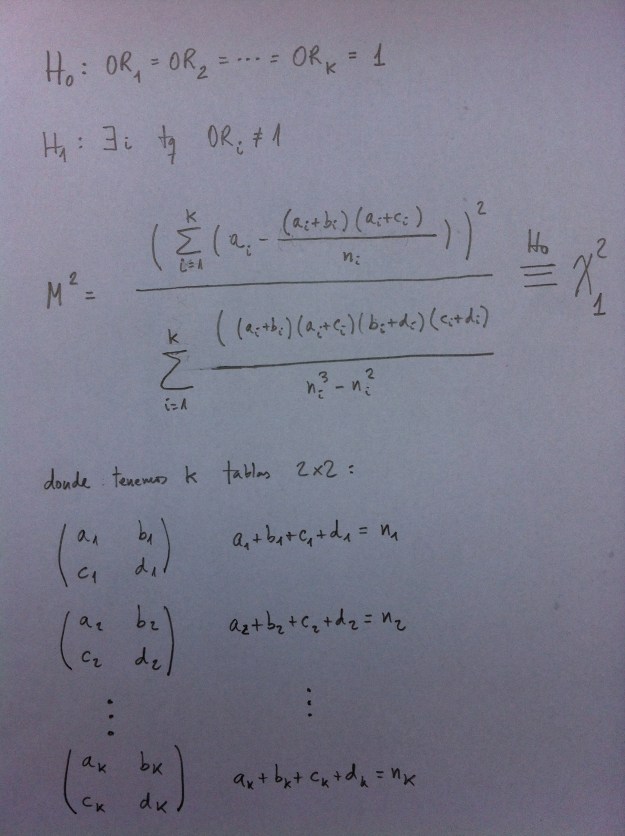 H₀ : OR₁ = OR₂ = ⋯ = ORₖ = 1
H₁ : ∃i tq ORᵢ ≠ 1
M² = ( ∑_{i=1}^{K} ( aᵢ - (aᵢ+bᵢ)(aᵢ+cᵢ) / nᵢ ) )² / ∑_{i=1}^{K} ( (aᵢ+bᵢ)(aᵢ+cᵢ)(bᵢ+dᵢ)(cᵢ+dᵢ) / nᵢ³ - nᵢ² ≡^{H₀} χ²₁
donde tenemos k tablas 2×2 :
( a₁ b₁ ) a₁+b₁+c₁+d₁ = n₁
( c₁ d₁ )
( a₂ b₂ ) a₂+b₂+c₂+d₂ = n₂
( c₂ d₂ )
⋮ ⋮
( aₖ bₖ ) aₖ+bₖ+cₖ+dₖ = nₖ
( cₖ dₖ )